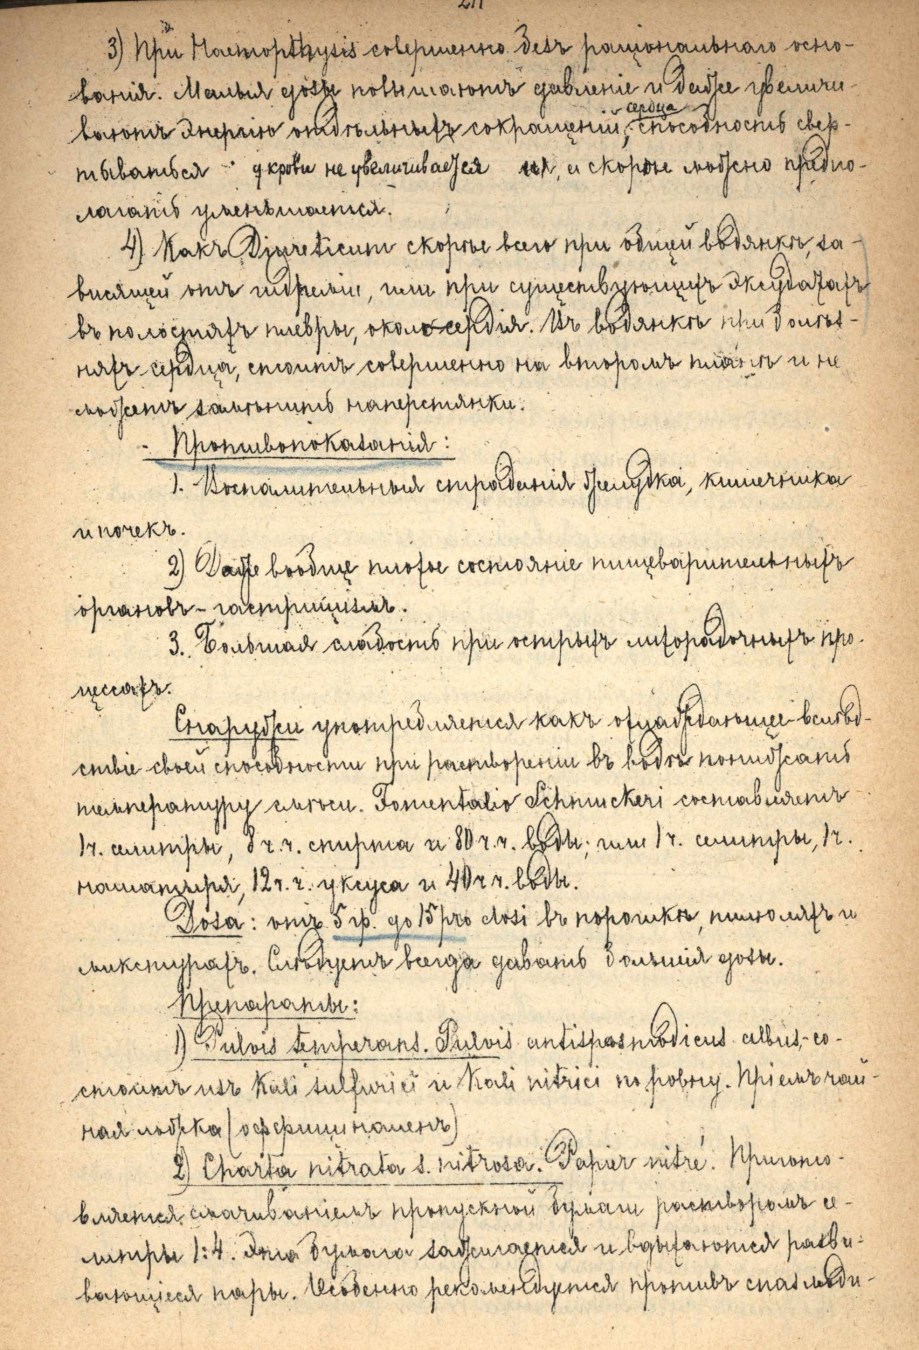 3) При Haemopthysis совершенно безъ раціональнаго осно-
ванія. Малыя дозы повышаютъ давленіе и даже увеличи-
ваютъ энергію отдѣльныхъ сокращеній сердца, способность свер-
тываться у крови не увеличивается, и скорѣе можно предпо-
лагать уменьшается.
4) Какъ Diureticum скорѣе всего при общей водянкѣ, за-
висящей отъ гидреміи, или при существующихъ эксудатахъ
въ полостяхъ плевры, около-сердія. Въ водянкѣ при болѣз-
няхъ сердца, стоитъ совершенно на второмъ планѣ и не
можетъ замѣнить наперстянки.
Противопоказанія:
1. Воспалительныя страданія желудка, кишечника
и почекъ.
2) Даже вообще плохое состояніе пищеварительныхъ
органовъ - гастрицизмъ.
3. Большая слабость при острыхъ лихорадочныхъ про-
цессахъ.
Снаружи употребляется какъ охлаждающее вслѣд-
ствіе своей способности при раствореніи въ водѣ понижать
температуру смѣси. Fomentatio Schmuckeri составляетъ
1ч. селитры, 8 ч.ч. спирта и 80 ч.ч. воды; или 1ч. селитры, 1ч.
нашатыря, 12 ч.ч. уксуса и 40 ч.ч. воды.
Dosa: отъ 5 гр. до 15 pro dosi въ порошкѣ, пилюляхъ и
микстурахъ. Слѣдуетъ всегда давать большія дозы.
Препараты:
1) Pulvis temperans. Pulvis antispasmodicus albus, - со-
стоитъ изъ Kali sulfurici и Kali nitrici по ровну. Пріемъ чай-
ная ложка (оффициналенъ)
2) Charta nitrata s. nitrosa. Papier nitré. Пригото-
вляется смачиваніемъ пропускной бумаги растворомъ се-
литры 1:4. Эта бумага зажигается и вдыхаются разви-
вающіеся пары. Особенно рекомендуется противъ спазмоди-